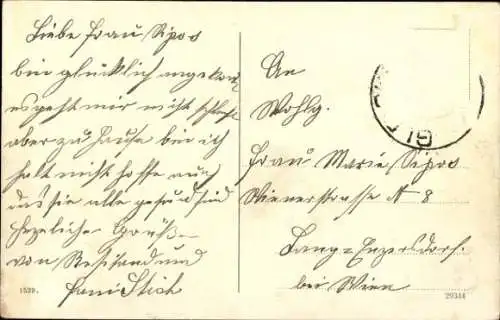 Liebe Frau Sipos
bin glücklich angekom
es geht mir nicht schlecht
aber zu Hause bin ich
halt nicht hoffe auch
das sie alle gesund sind
Herzliche Grüße
von und
Stich
1539.
An
Wohlg.
Frau Marie Sipos
Wienerstrasse N 8
Lang=Enzersdorf.
bei Wien
29344